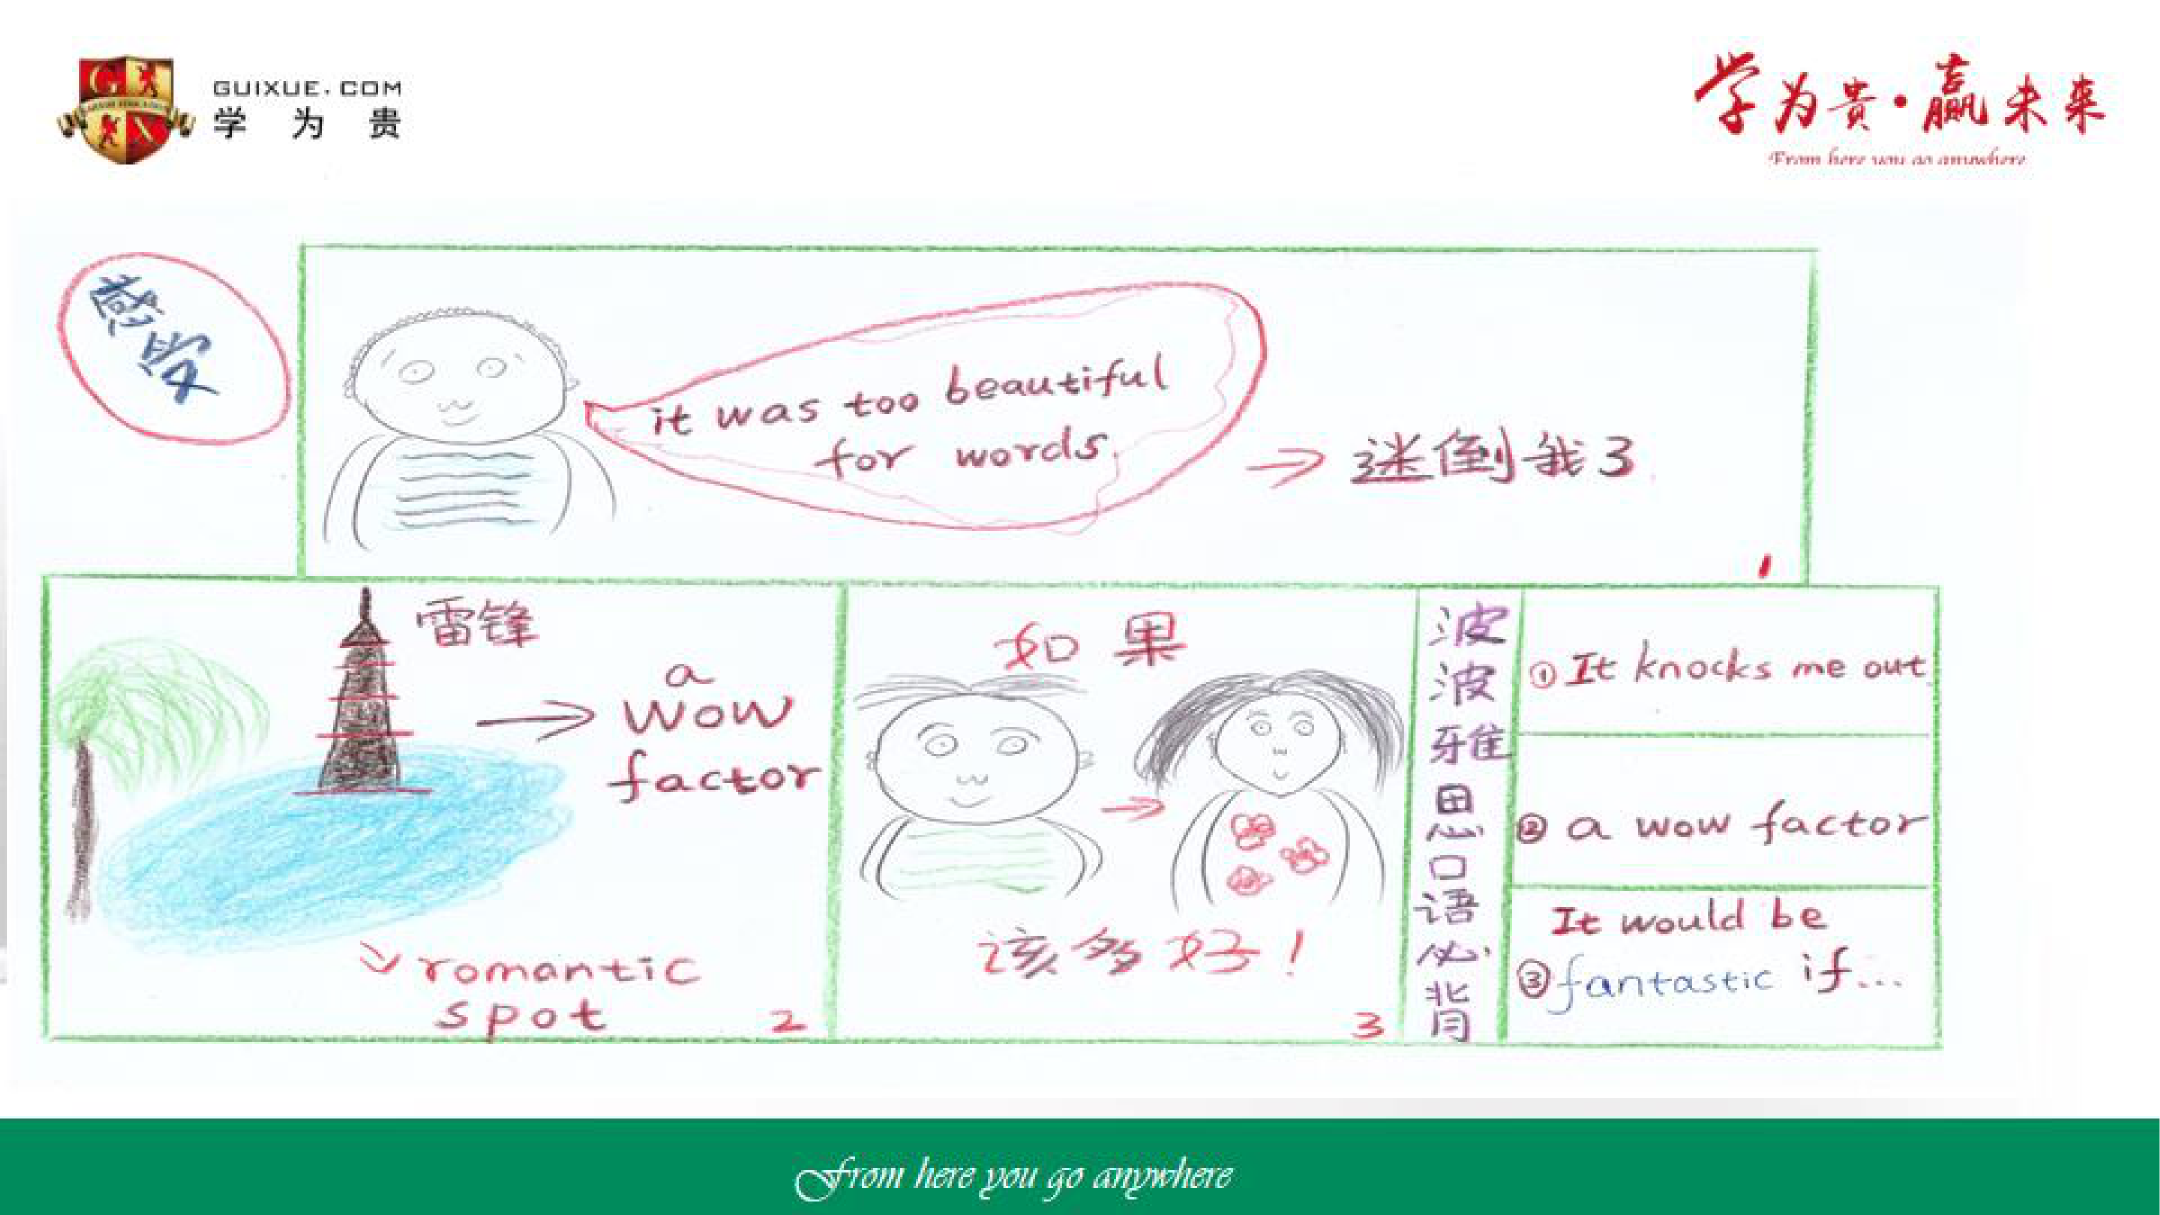 GUIXUE.COM
学为贵
学为贵·赢未来
From here you go anywhere
感受
it was too beautiful
for words.
→ 迷倒我了
1
雷锋
→ a
wow
factor
romantic
spot
2
如果
该多好!
3
波波雅思口语必背
① It knocks me out
② a wow factor
It would be
③ fantastic if...
From here you go anywhere